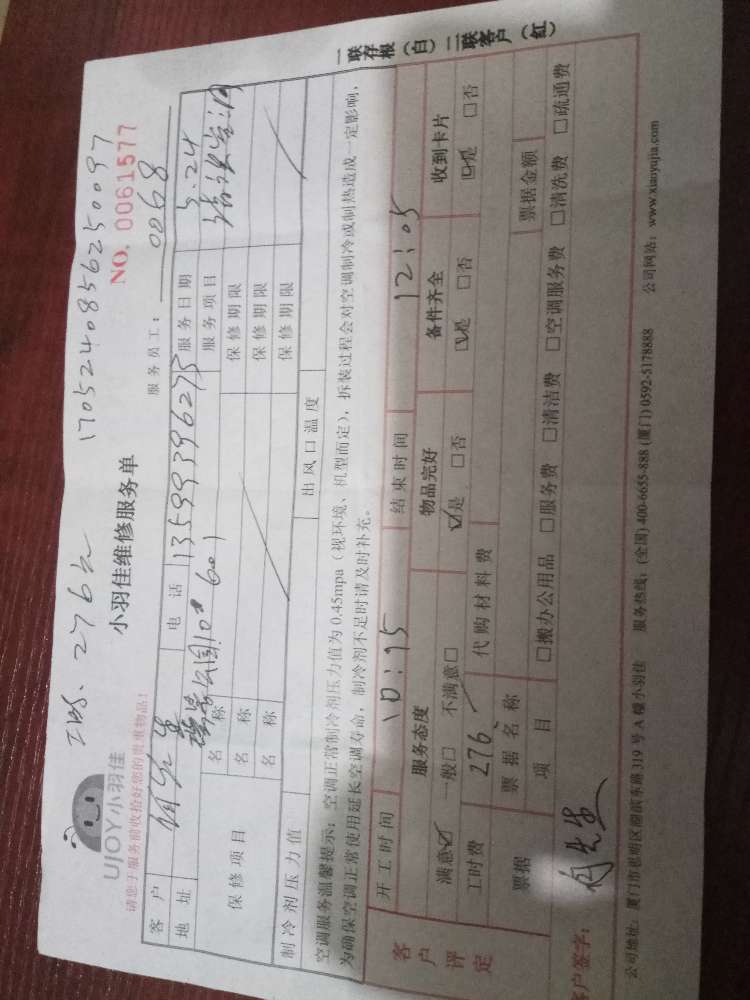 工时 276元 170524085625 0097
UJOY小羽佳 小羽佳维修服务单 NO. 0061577
请您于服务前收拾好您的贵重物品! 服务员工: 0068
客户 何先生 电话 13599396275 服务日期 5.24
地址 601 服务项目
保修项目 名称 保修期限
名称 保修期限
名称 保修期限
制冷剂压力值 出风口温度
空调服务温馨提示: 空调正常制冷剂压力值为 0.45mpa (视环境、机型而定), 拆装过程会对空调制冷或制热造成一定影响,
为确保空调正常使用延长空调寿命, 制冷剂不足时请及时补充。
客户评定 开工时间 10:15 结束时间 12:05
服务态度 物品完好 备件齐全 收到卡片
满意☑ 一般□ 不满意□ ☑是 □否 ☑是 □否 ☑是 □否
工时费 276 代购材料费
票据 票据名称 票据金额
项目 □搬办公用品 □服务费 □清洁费 □空调服务费 □清洗费 □疏通费
客户签字: 何先生
公司地址: 厦门市思明区湖滨东路 319 号 A 楼小羽佳 服务热线: (全国) 400-6655-888 (厦门) 0592-5178888 公司网站: www.xiaoyujia.com
一联存根(白) 二联客户(红)